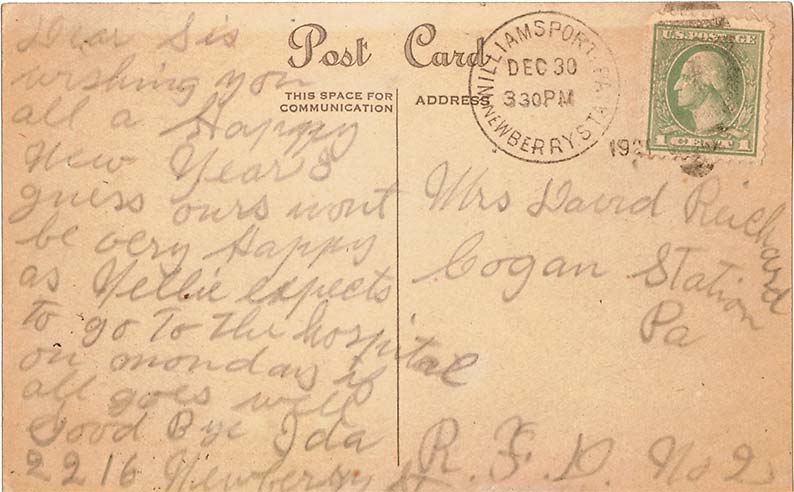 Post Card
THIS SPACE FOR
COMMUNICATION
ADDRESS
WILLIAMSPORT, PA.
DEC 30
330PM
NEWBERRY STA.
192
U.S. POSTAGE
1 CENT 1
Dear Sis
wishing you
all a Happy
New Years
guess ours wont
be very Happy
as Nellie expects
to go to the hospital
on monday if
all goes well
Good Bye Ida
2216 Newberry St
Mrs David Reichard
Cogan Station
Pa
R. F. D. No 2